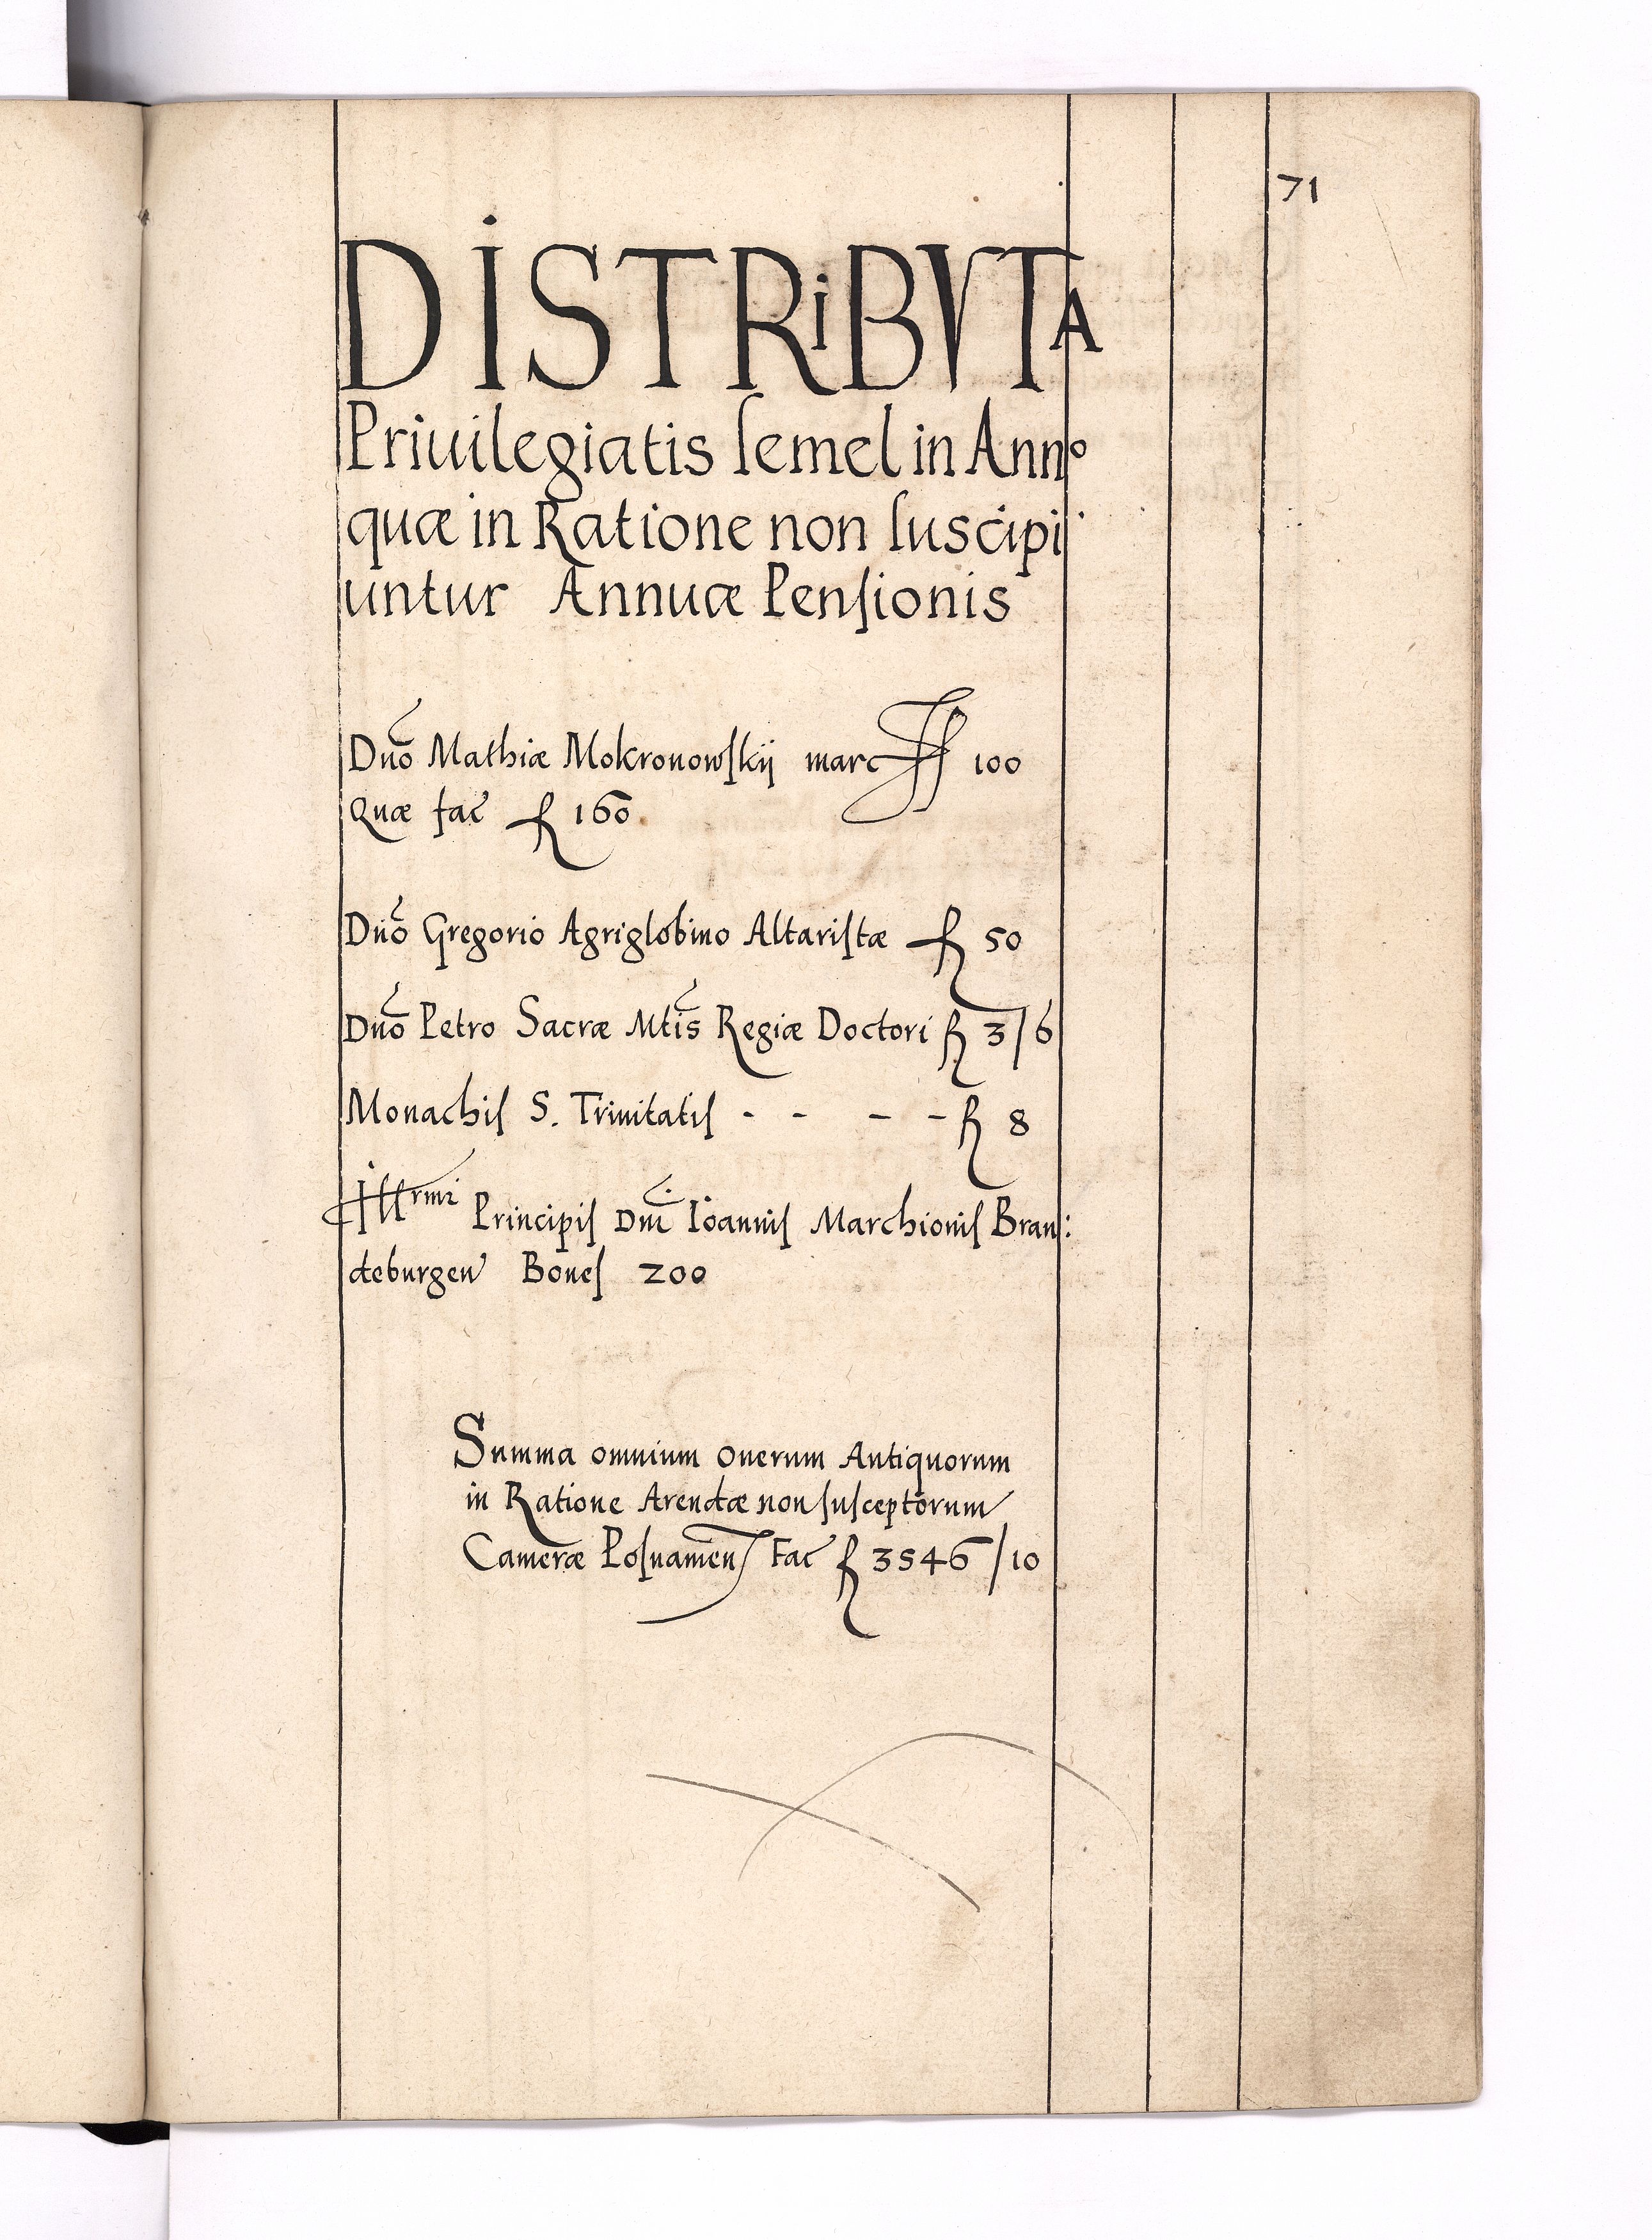 71
DISTRiBVTA
Priuilegiatis ſemel in Anno
quæ in Ratione non ſuscipi
untur Annuæ Penſionis
Dno Mathiæ Mokronowſkij marc 100
Quæ fac fl 160
Dno Gregorio Agriglobino Altariſtæ fl 50
Dno Petro Sacræ Mtis Regiæ Doctori fl 3/6
Monachiſ S. Trinitatiſ - - - - fl 8
Illrmi Principiſ Dni Ioanniſ Marchioniſ Bran:
deburgen Boueſ 200
Summa omnium onerum Antiquorum
in Ratione Arendæ non ſuſceptorum
Cameræ Poſnamen Fac fl 3546/10